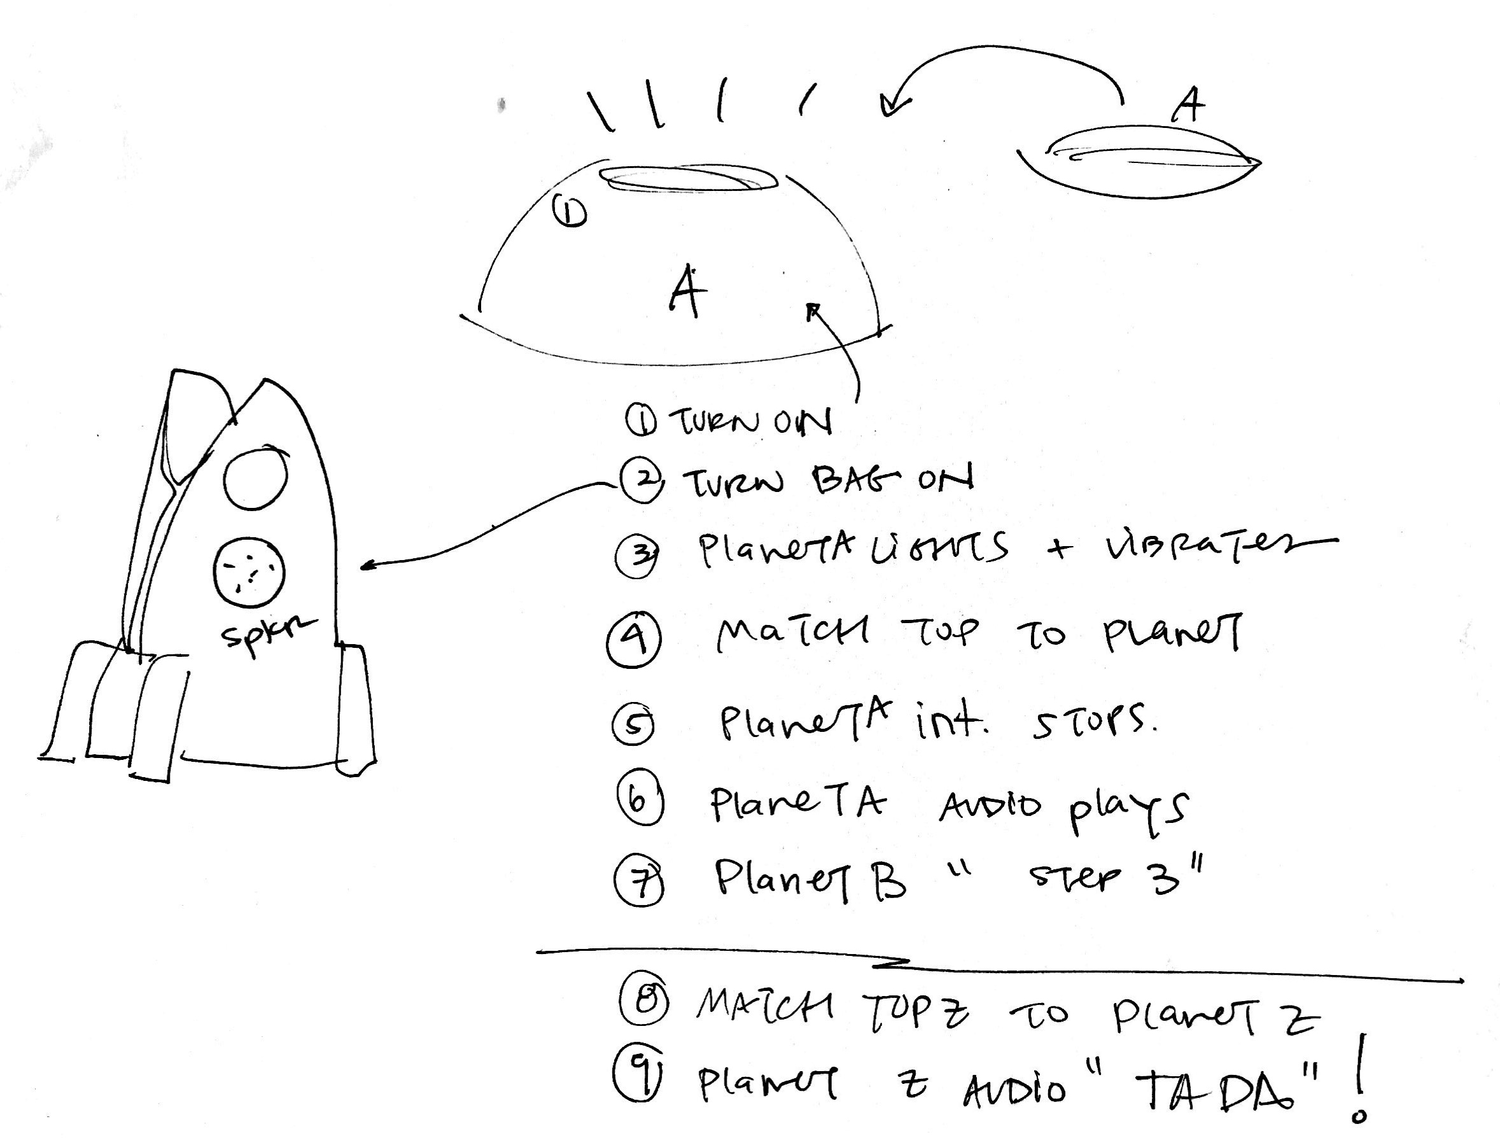 A
①
A
① TURN ON
② TURN BAG ON
③ PlaneTA LIGHTS + VIBRATES
SPKR
④ MATCH TOP TO PLANET
⑤ PlaneTA int. STOPS.
⑥ PlaneTA AUDIO plays
⑦ PlaneT B " STEP 3"
⑧ MATCH TOP Z TO PlaneT Z
⑨ PlaneT Z AUDIO " TA DA" !